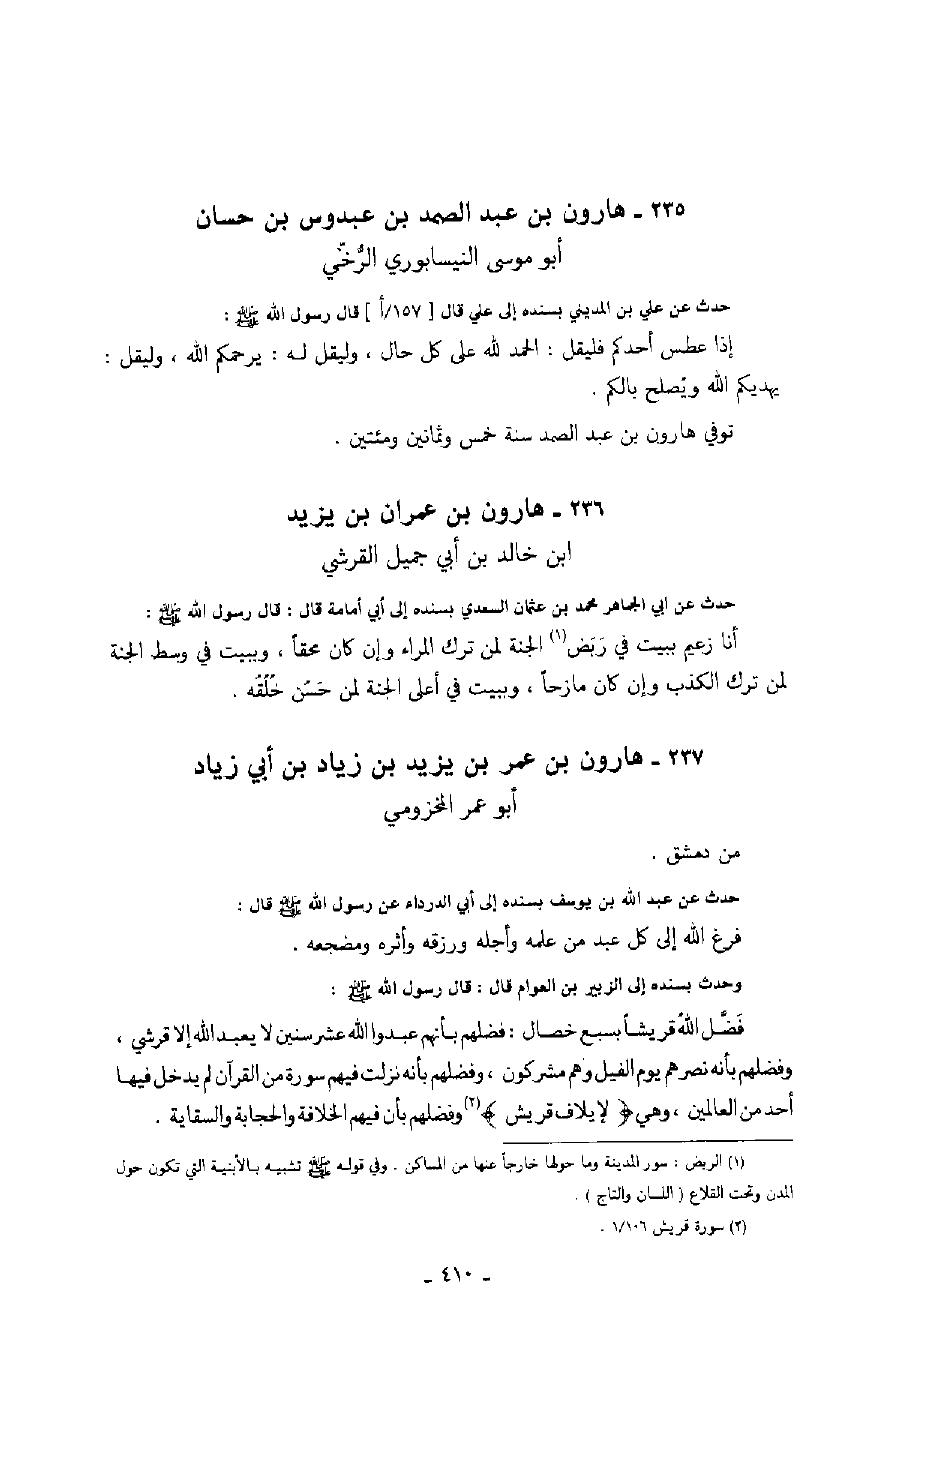 ٢٣٥ ـ هارون بن عبد الصمد بن عبدوس بن حسان
أبو موسى النيسابوري الرُّخّي
حدث عن علي بن المديني بسنده إلى علي قال [ ١٥٧/أ ] قال رسول الله ﷺ :
إذا عطس أحدكم فليقل : الحمد لله على كل حال ، وليقل له : يرحمكم الله ، وليقل :
يهديكم الله ويُصلح بالكم .
توفي هارون بن عبد الصمد سنة خمس وثمانين ومئتين .
٢٣٦ ـ هارون بن عمران بن يزيد
ابن خالد بن أبي جميل القرشي
حدث عن ابي الجماهر محمد بن عثمان السعدي بسنده إلى أبي أمامة قال : قال رسول الله ﷺ :
أنا زعيم ببيت في رَبَض(١) الجنة لمن ترك المراء وإن كان محقاً ، وببيت في وسط الجنة
لمن ترك الكذب وإن كان مازحاً ، وببيت في أعلى الجنة لمن حَسُن خُلُقُه .
٢٣٧ ـ هارون بن عمر بن يزيد بن زياد بن أبي زياد
أبو عمر المخزومي
من دمشق .
حدث عن عبد الله بن يوسف بسنده إلى أبي الدرداء عن رسول الله ﷺ قال :
فرغ الله إلى كل عبد من علمه وأجله ورزقه وأثره ومضجعه .
وحدث بسنده إلى الزبير بن العوام قال : قال رسول الله ﷺ :
فَضَّل اللهُ قريشاً بسبع خصال : فضلهم بأنهم عبدوا الله عشر سنين لا يعبد الله إلا قرشي ،
وفضلهم بأنه نصرهم يوم الفيل وهم مشركون ، وفضلهم بأنه نزلت فيهم سورة من القرآن لم يدخل فيها
أحد من العالمين ، وهي ﴿ لإيلاف قريش ﴾(٢) وفضلهم بأن فيهم الخلافة والحجابة والسقاية .
(١) الربض : سور المدينة وما حولها خارجاً عنها من المساكن . وفي قوله ﷺ تشبيه بالأبنية التي تكون حول
المدن وتحت القلاع ( اللسان والتاج ) .
(٢) سورة قريش ١/١٠٦ .
ـ ٤١٠ ـ